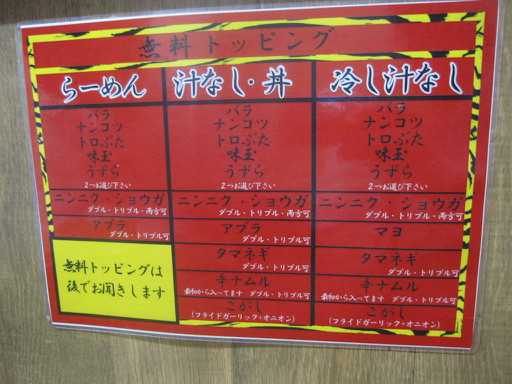 無料トッピング
らーめん
バラ
ナンコツ
トロぶた
味玉
うずら
2つお選び下さい
ニンニク・ショウガ
ダブル・トリプル・両方可
アブラ
ダブル・トリプル可
無料トッピングは
後でお聞きします
汁なし・丼
バラ
ナンコツ
トロぶた
味玉
うずら
2つお選び下さい
ニンニク・ショウガ
ダブル・トリプル・両方可
アブラ
ダブル・トリプル可
タマネギ
ダブル・トリプル可
辛ナムル
最初から入ってます ダブル・トリプル可
こがし
(フライドガーリック+オニオン)
冷し汁なし
バラ
ナンコツ
トロぶた
味玉
うずら
2つお選び下さい
ニンニク・ショウガ
ダブル・トリプル・両方可
マヨ
タマネギ
ダブル・トリプル可
辛ナムル
最初から入ってます ダブル・トリプル可
こがし
(フライドガーリック+オニオン)